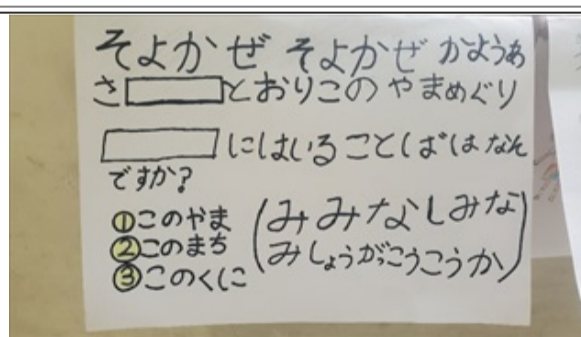 そよかぜ そよかぜ かようあ
さ とおりこの やまめぐり
にはいることばは なん
ですか?
①このやま
②このまち
③このくに
(みみなしみな
みしょうがっこうこうか)